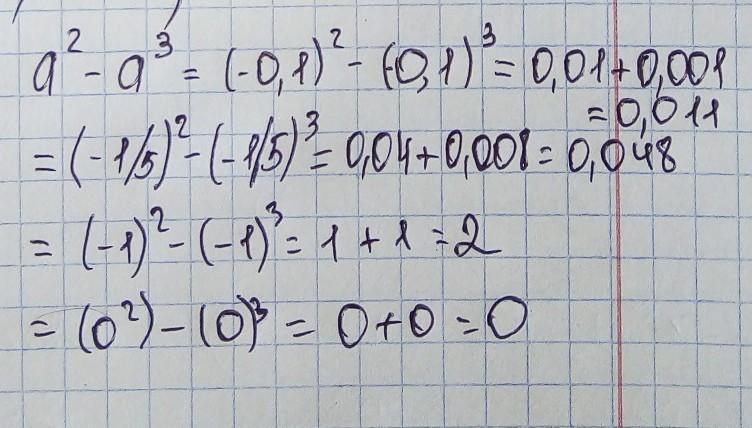 a² - a³ = (-0,1)² - (-0,1)³ = 0,01 + 0,001
= 0,011
= (-1/5)² - (-1/5)³ = 0,04 + 0,008 = 0,048
= (-1)² - (-1)³ = 1 + 1 = 2
= (0²) - (0)³ = 0 + 0 = 0